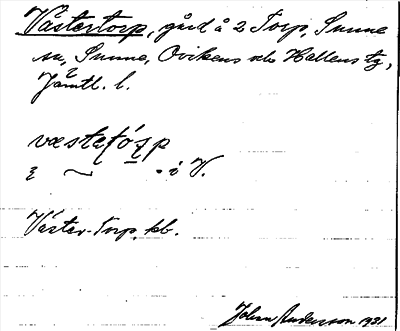 Västertorp, gård å 2 Torp, Sunne
sn, Sunne, Ovikens och Hallens tg,
Jämtl. l.
væstetórp
i V.
Väster-Torp, kb.
Johan Andersson 1931